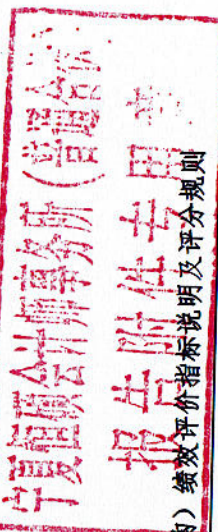 宁夏恒桢会计师事务所（普通合伙
报告附件专用章
）绩效评价指标说明及评分规则